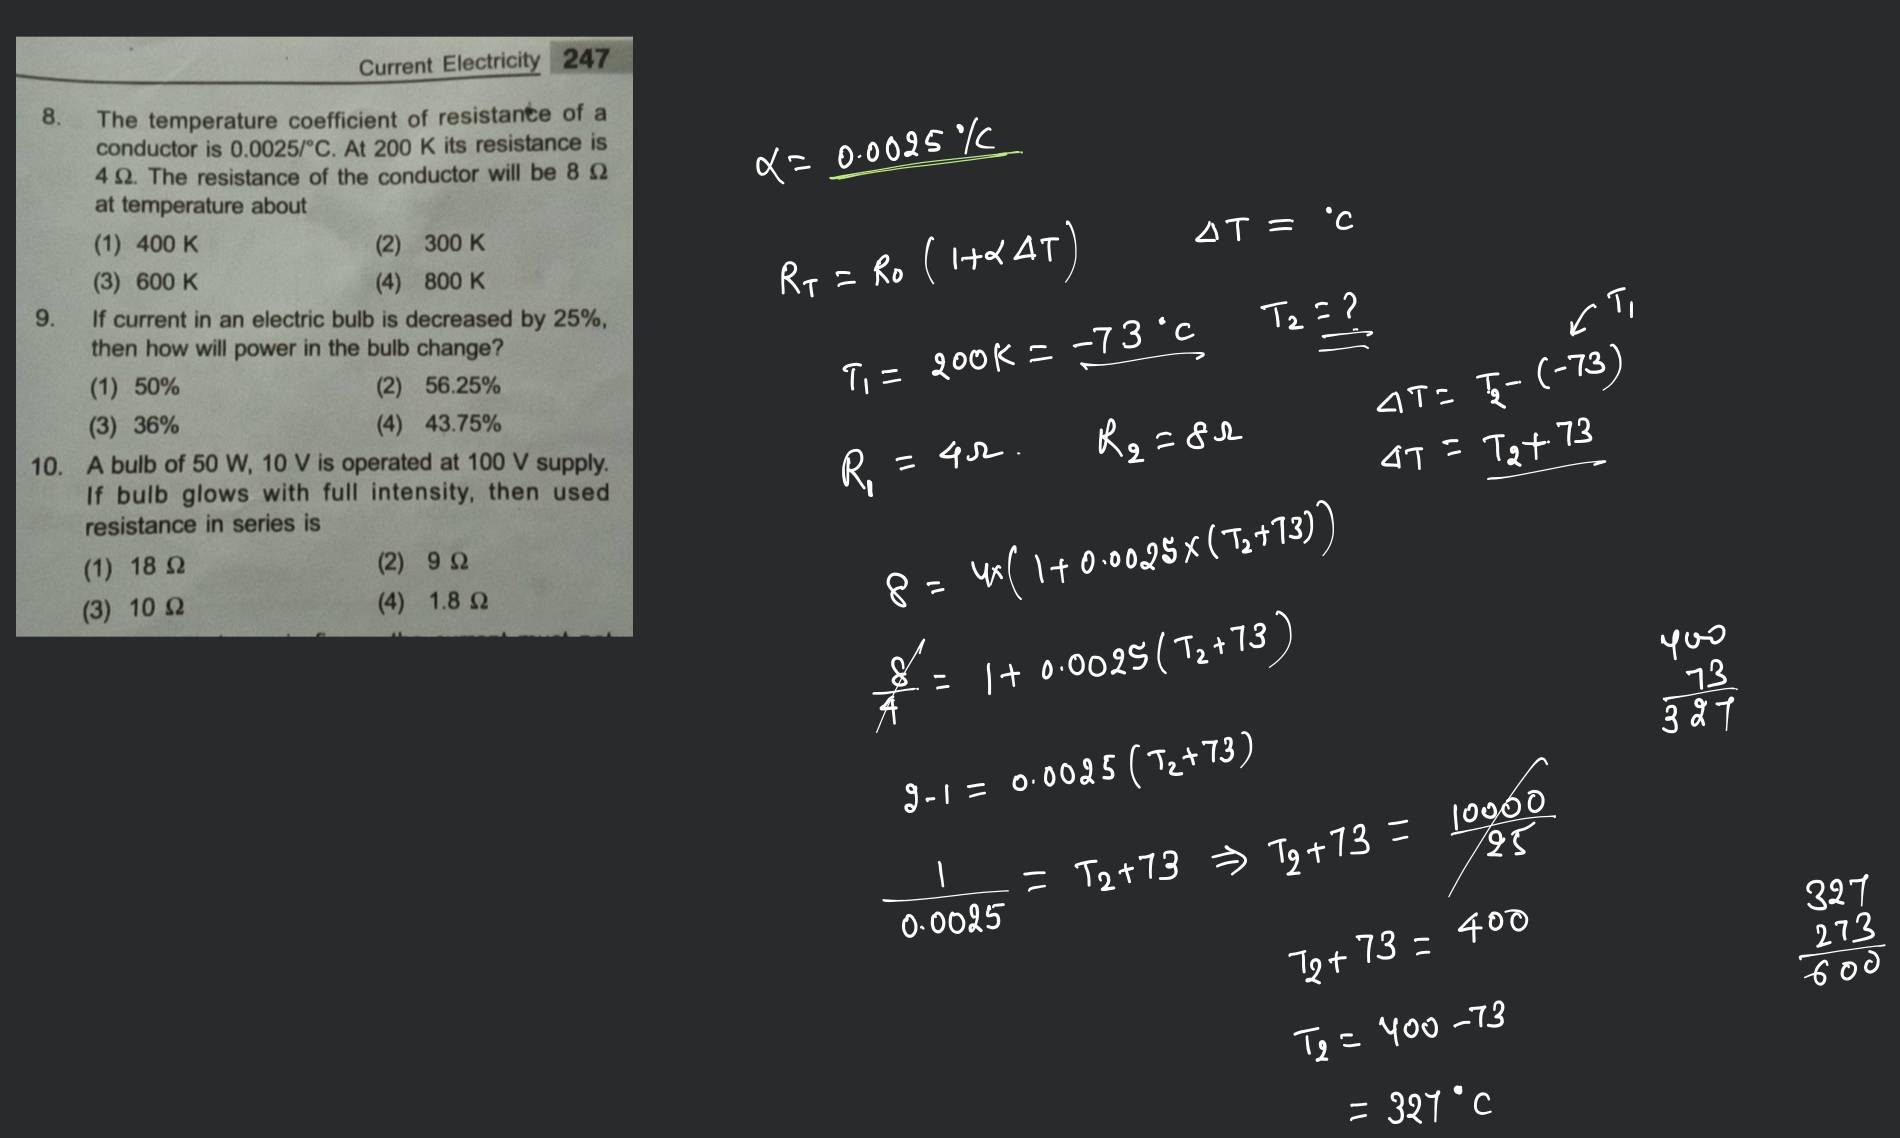 Current Electricity 247
8. The temperature coefficient of resistance of a
conductor is 0.0025/°C. At 200 K its resistance is
4 Ω. The resistance of the conductor will be 8 Ω
at temperature about
(1) 400 K (2) 300 K
(3) 600 K (4) 800 K
9. If current in an electric bulb is decreased by 25%,
then how will power in the bulb change?
(1) 50% (2) 56.25%
(3) 36% (4) 43.75%
10. A bulb of 50 W, 10 V is operated at 100 V supply.
If bulb glows with full intensity, then used
resistance in series is
(1) 18 Ω (2) 9 Ω
(3) 10 Ω (4) 1.8 Ω
α = 0.0025 °/C
R_T = R_0 (1+α ΔT) ΔT = °C
T_1 = 200K = -73 °C T_2 = ?
R_1 = 4Ω. R_2 = 8Ω
T_1
ΔT = T_2 - (-73)
ΔT = T_2 + 73
8 = 4×(1+0.0025×(T_2+73))
8/4 = 1+ 0.0025(T_2+73)
2-1 = 0.0025(T_2+73)
1/0.0025 = T_2+73 ⇒ T_2+73 = 10000/25
T_2+73 = 400
T_2 = 400-73
= 327°C
400
73
327
327
273
600